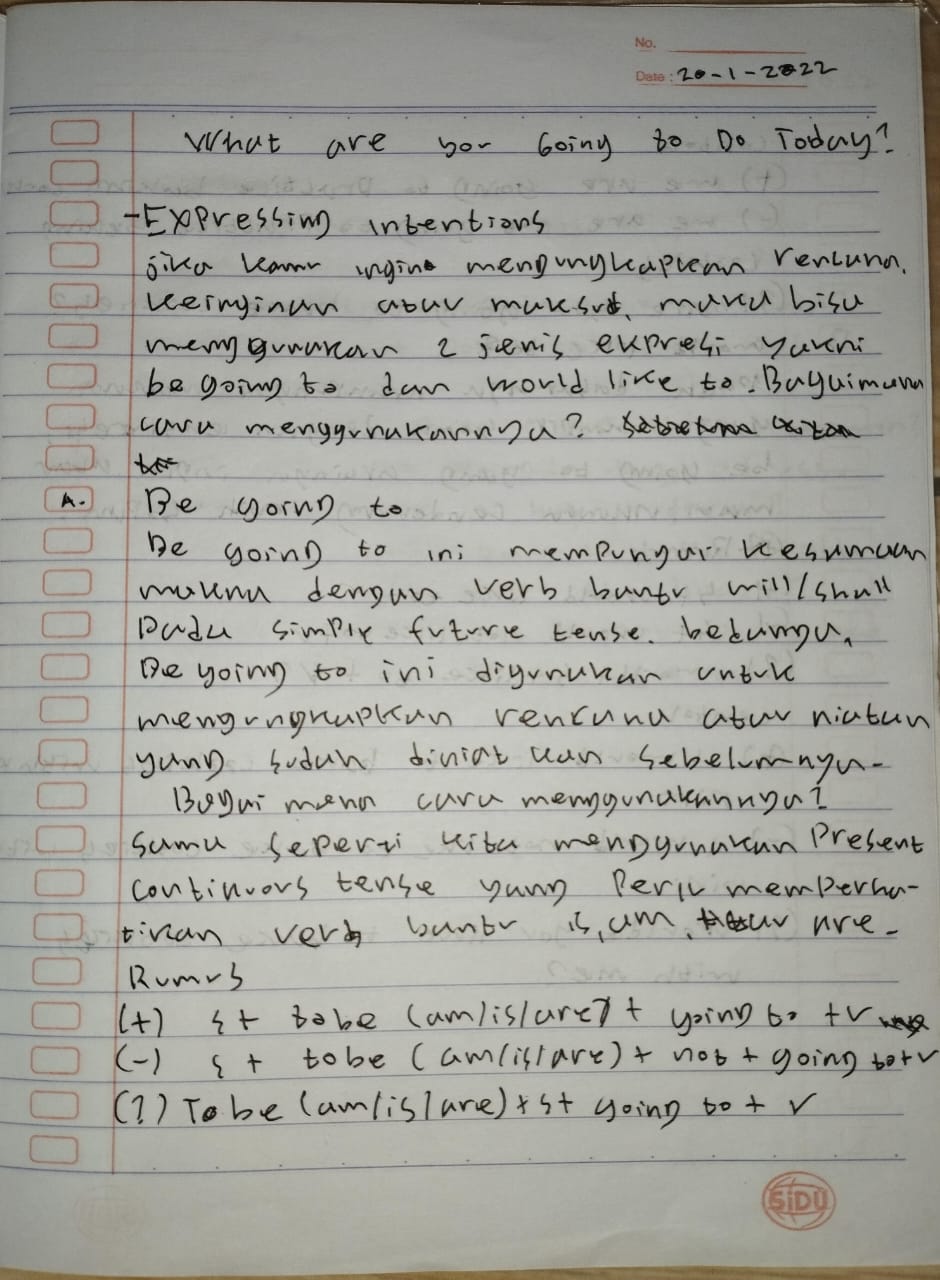 No.
Date: 20-1-2022
What are you Going to Do Today?
- Expressing intentions
jika kamu ingin mengungkapkan rencana,
keinginan atau maksud, maka bisa
menggunakan 2 jenis expresi yakni
be going to dan world like to. Bagaimana
cara menggunakannya?
A. Be going to
Be going to ini mempunyai kesamaan
makna dengan verb bantu will/shall
Pada simple future tense. bedanya,
Be going to ini digunakan untuk
mengungkapkan rencana atau niatan
yang sudah diniatkan sebelumnya.
Bagaimana cara menggunakannya?
Sama seperti kita menggunakan Present
continuous tense yang Perlu memperha-
tikan verb bantu is, am, atau are.
Rumus
(+) S + tobe (am/is/are) + going to + V
(-) S + tobe (am/is/are) + not + going to + V
(?) To be (am/is/are) + S + going to + V
SiDU